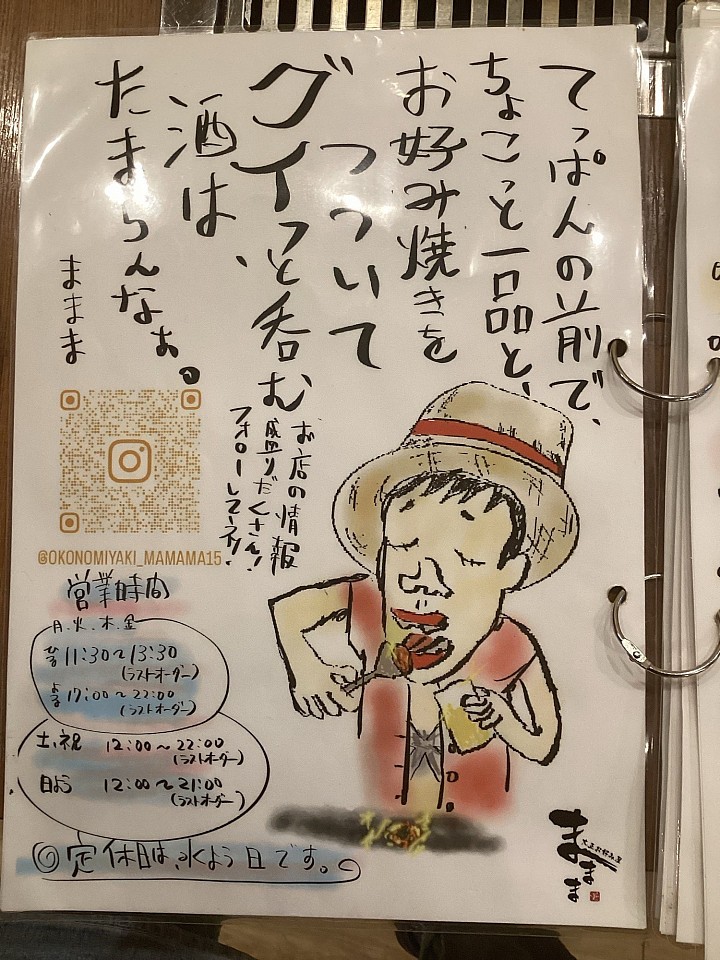 てっぱんの前で、
ちょこっと一品と、
お好み焼きを
つついて
グイっと呑む
酒は、
たまらんなぁ。
ままま
お店の情報
盛りだくさん!
フォローしてネ!
@OKONOMIYAKI_MAMAMA15
営業時間
月.火.木.金
ひる 11:30~13:30
(ラストオーダー)
よる 17:00~22:00
(ラストオーダー)
土.祝 12:00~22:00
(ラストオーダー)
日よう 12:00~21:00
(ラストオーダー)
◎定休日は、水よう日です。
ままま